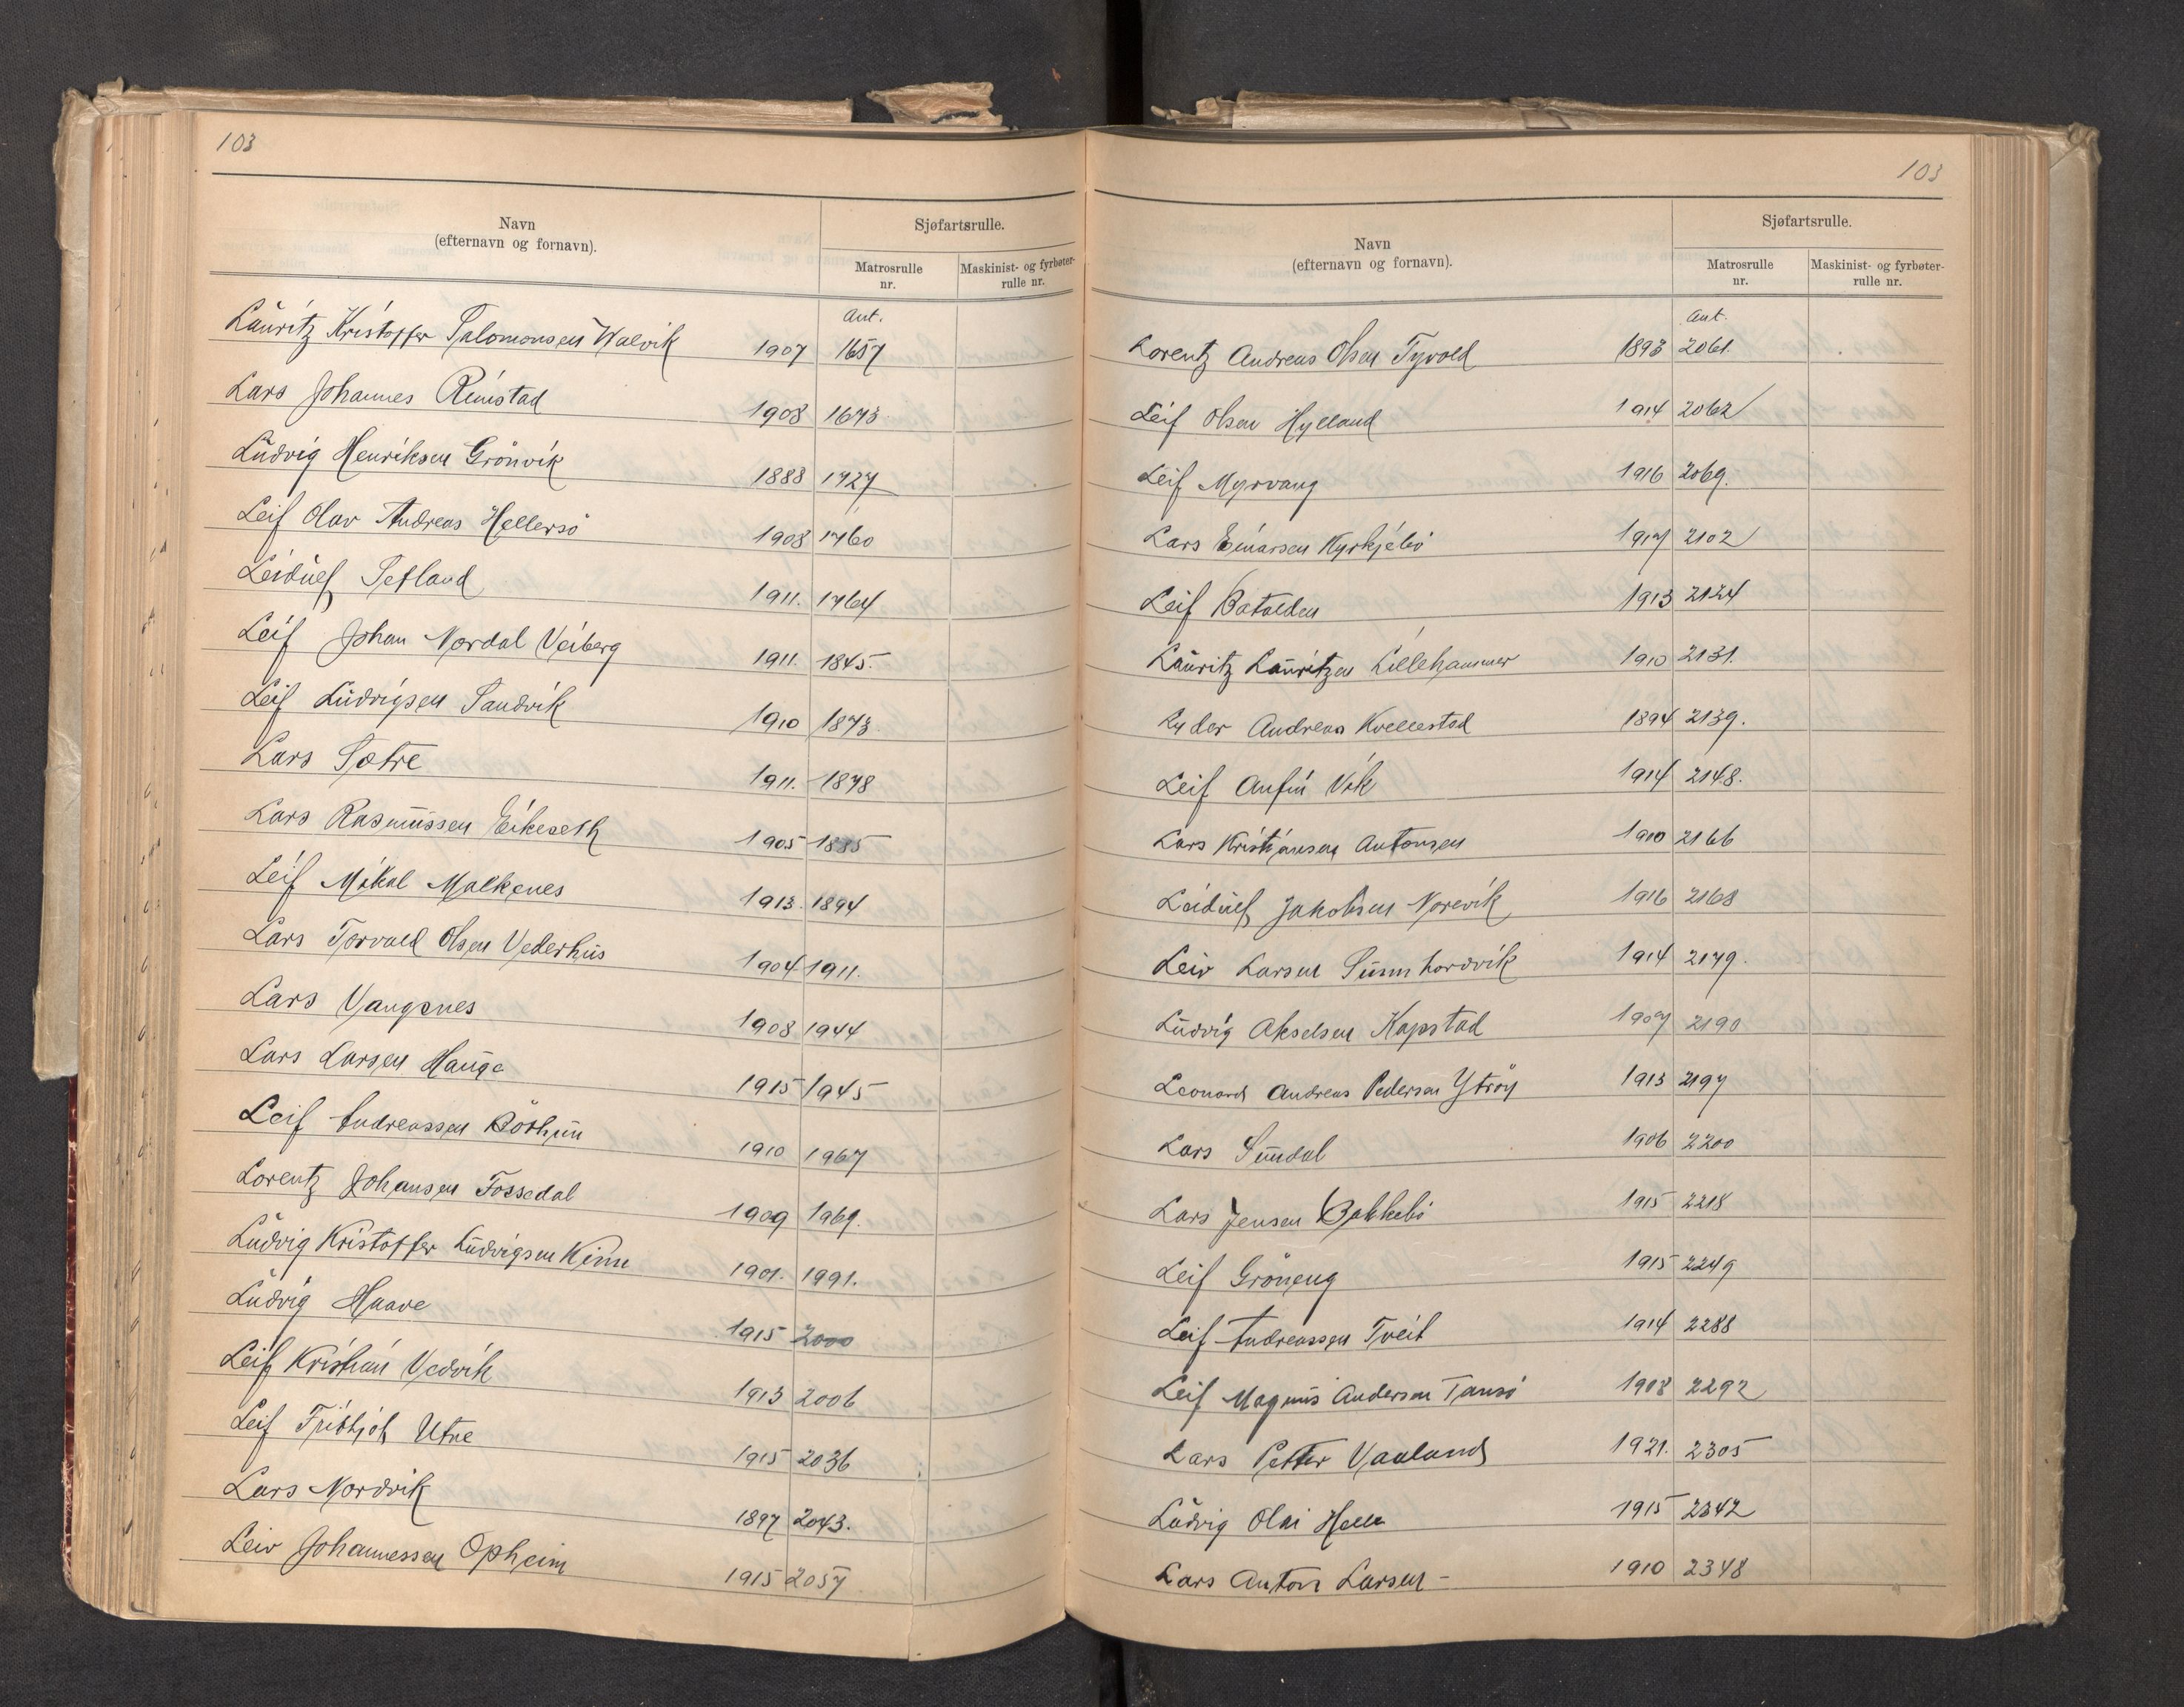 103
Navn
(efternavn og fornavn).
Sjøfartsrulle.
Matrosrulle
nr.
Maskinist- og fyrbøter-
rulle nr.
Ant.
Lauritz Kristoffer Salomonsen Walvik 1907 1657
Lars Johannes Rimstad 1908 1673
Ludvig Henriksen Grönvik 1888 1727
Leif Olav Andreas Hellersö 1908 1760
Leidulf Setland 1911. 1764
Leif Johan Nordal Veiberg 1911. 1845.
Leif Ludvigsen Sandvik 1910 1873
Lars Sætre 1911. 1878
Lars Rasmussen Eikeseth 1905 1885
Leif Mikal Malkenes 1913. 1894
Lars Torvald Olsen Vederhus 1904 1911.
Lars Vangsnes 1908 1944
Lars Larsen Hauge 1915 1945
Leif Andreassen Börhun 1910 1967
Lorentz Johansen Fossedal 1909 1969.
Ludvig Kristoffer Ludvigsen Kinn 1901. 1991.
Ludvig Haave 1915 2000
Leif Kristian Vedvik 1913 2006
Leif Fribhjoh Utne 1915 2036
Lars Nordvik 1897 2043.
Leiv Johannessen Opheim 1915 2057
103
Navn
(efternavn og fornavn).
Sjøfartsrulle.
Matrosrulle
nr.
Maskinist- og fyrbøter-
rulle nr.
Ant.
Lorentz Andreas Olsen Tyvold 1893 2061.
Leif Olsen Hylland 1914 2062
Leif Myrvang 1916 2069.
Lars Einarsen Kyrkjebö 1917 2102
Leif Batalden 1913 2124
Lauritz Lauritzen Lillehammer 1910 2131.
Lyder Andreas Kvellestad 1894 2139.
Leif Anfin Vik 1914 2148.
Lars Kristiansen Antonsen 1900 2166
Leidulf Jakobsen Norevik 1916 2168
Leiv Larsen Sunnhordvik 1914 2179.
Ludvig Akselsen Kapstad 1907 2190
Leonard Andreas Pedersen Ytröy 1913 2197
Lars Sundal 1906 2200
Lars Jensen Bakkebö 1915 2218
Leif Gröneng 1915 2249
Leif Andreassen Tveit 1914 2288
Leif Magnus Andersen Tansö 1908 2292
Lars Petter Vaaland 1921. 2305
Ludvig Olai Helle 1915 2342
Lars Anton Larsen - 1910 2348